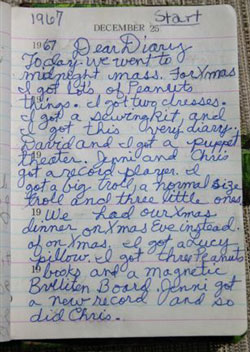 1967 Start
DECEMBER 25
1967 Dear Diary
Today we went to
midnight mass. For Xmas
I got lots of Peanuts
things. I got two dresses.
I got a sewing kit, and
I got this very diary.
David and I got a puppet
theater. Jenni and Chris
got a record player. I
got a big troll, a normal size
troll and three little ones
19 We had our Xmas
dinner on Xmas Eve instead
of on Xmas. I got a Lucy
pillow. I got three Peanuts
19 books and a magnetic
Bulliten Board. Jenni got
a new record and so
did Chris.